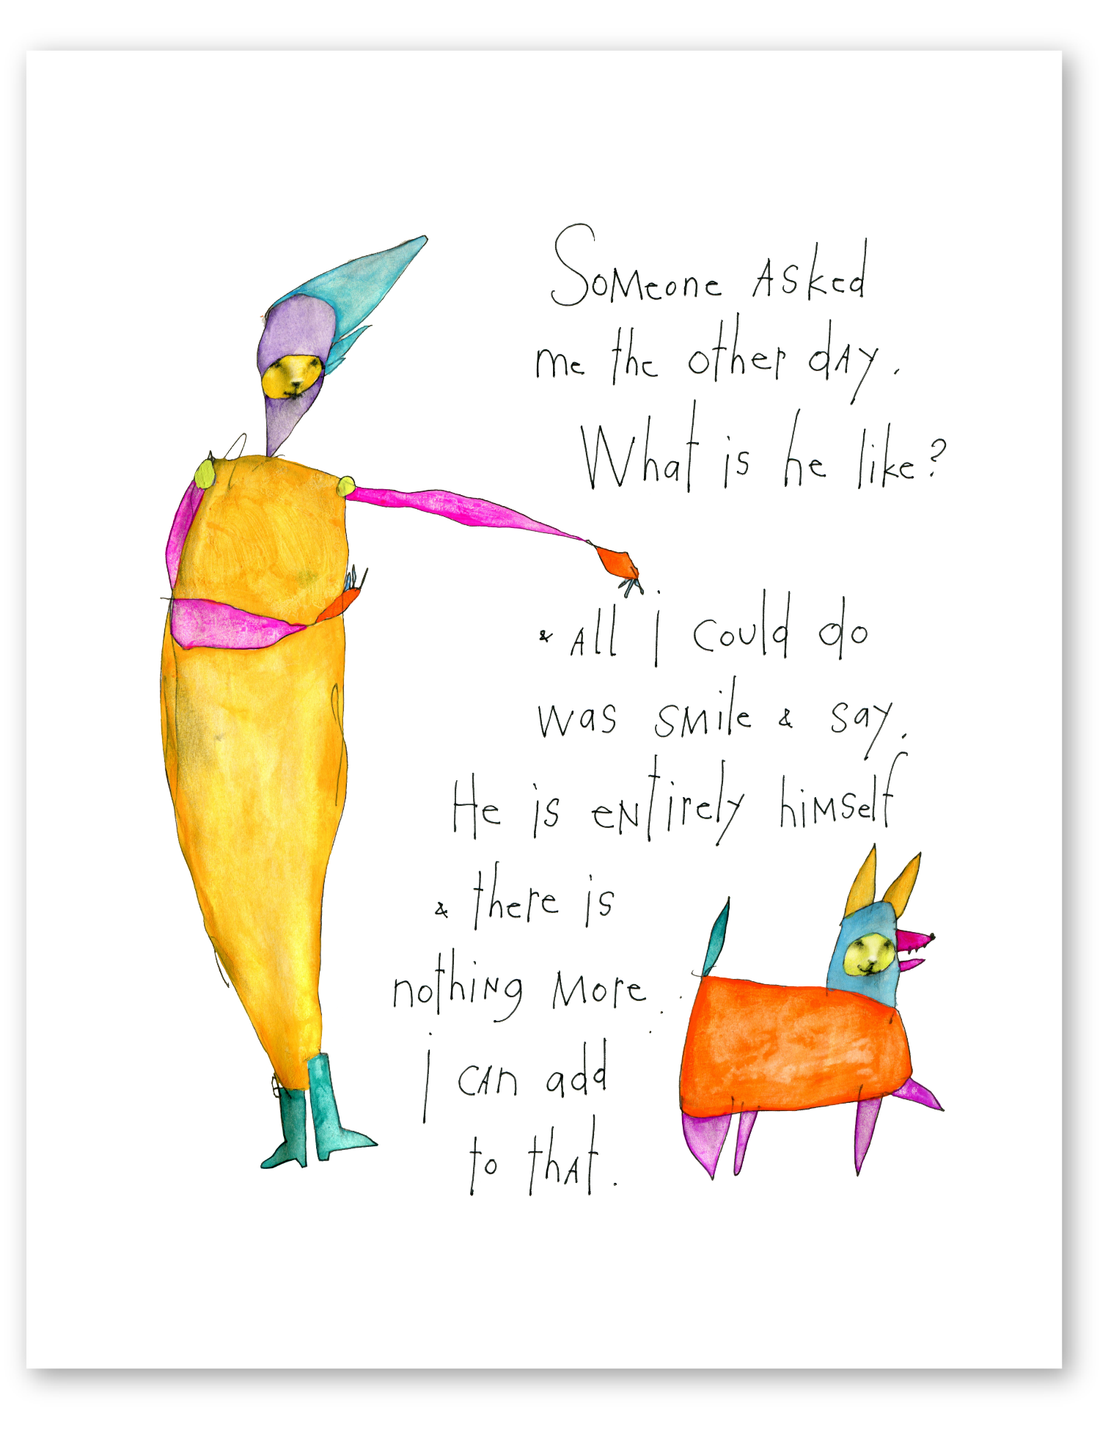 Someone asked
me the other day.
What is he like?
& all i could do
was smile & say.
He is entirely himself
& there is
nothing more
i can add
to that.